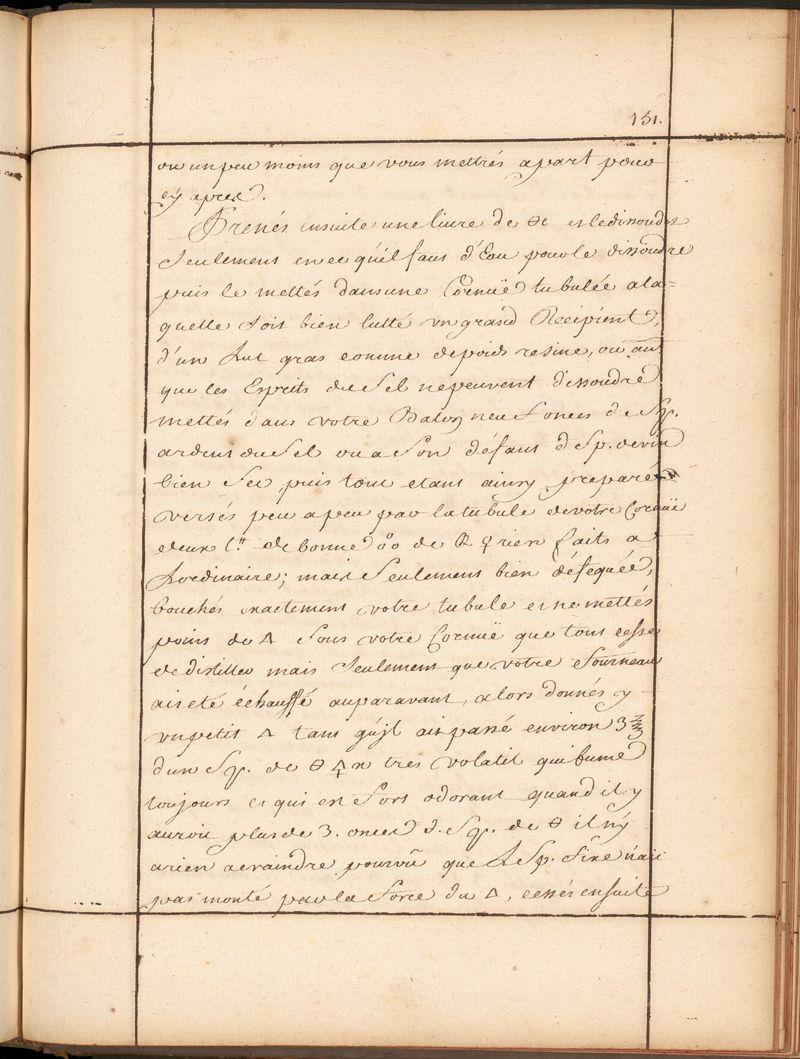 131.
ou un peu moins que vous mettrés apart pour
cy apres.
Prenés ensuite une livre de et le dissoudes
seulement en ce qu'il faut d'Eau pour le dissoudre
puis le mettés dans une Cornuë tubulée a la-
quelle soit bien lutté un grand Recipient,
d'un Lut gras comme de poids resine, ou au
que les Esprits de Sel ne peuvent dissoudre
mettés dans votre Balon neuf onces de Sp.
ardent du Sel ou a Son défaut d'Sp. de vin
bien Sec puis tout etant ainsy preparé
versés peu a peu par la tubule de votre Cornuë
deux l.tt de bonne de rien faits a
Lordinaire; mais Seulement bien défequée,
bouchés exactement votre tubule et ne mettés
point de △ Sous votre Cornuë que tout cesse
de distiller mais Seulement que votre Fourneau
ait eté échauffé auparavant, alors donnés y
un petit △ tant qu'jl ait passé environ 3 ℥
d'un Sp. de tres volatil qui fume
toujours et qui en Sort odorant quand il y
auroit plus de 3. onces d. Sp. de ϴ il n'y
a rien a craindre pourvû que L Sp. fixe n'ait
pas monté par la Force du △, cessés ensuite